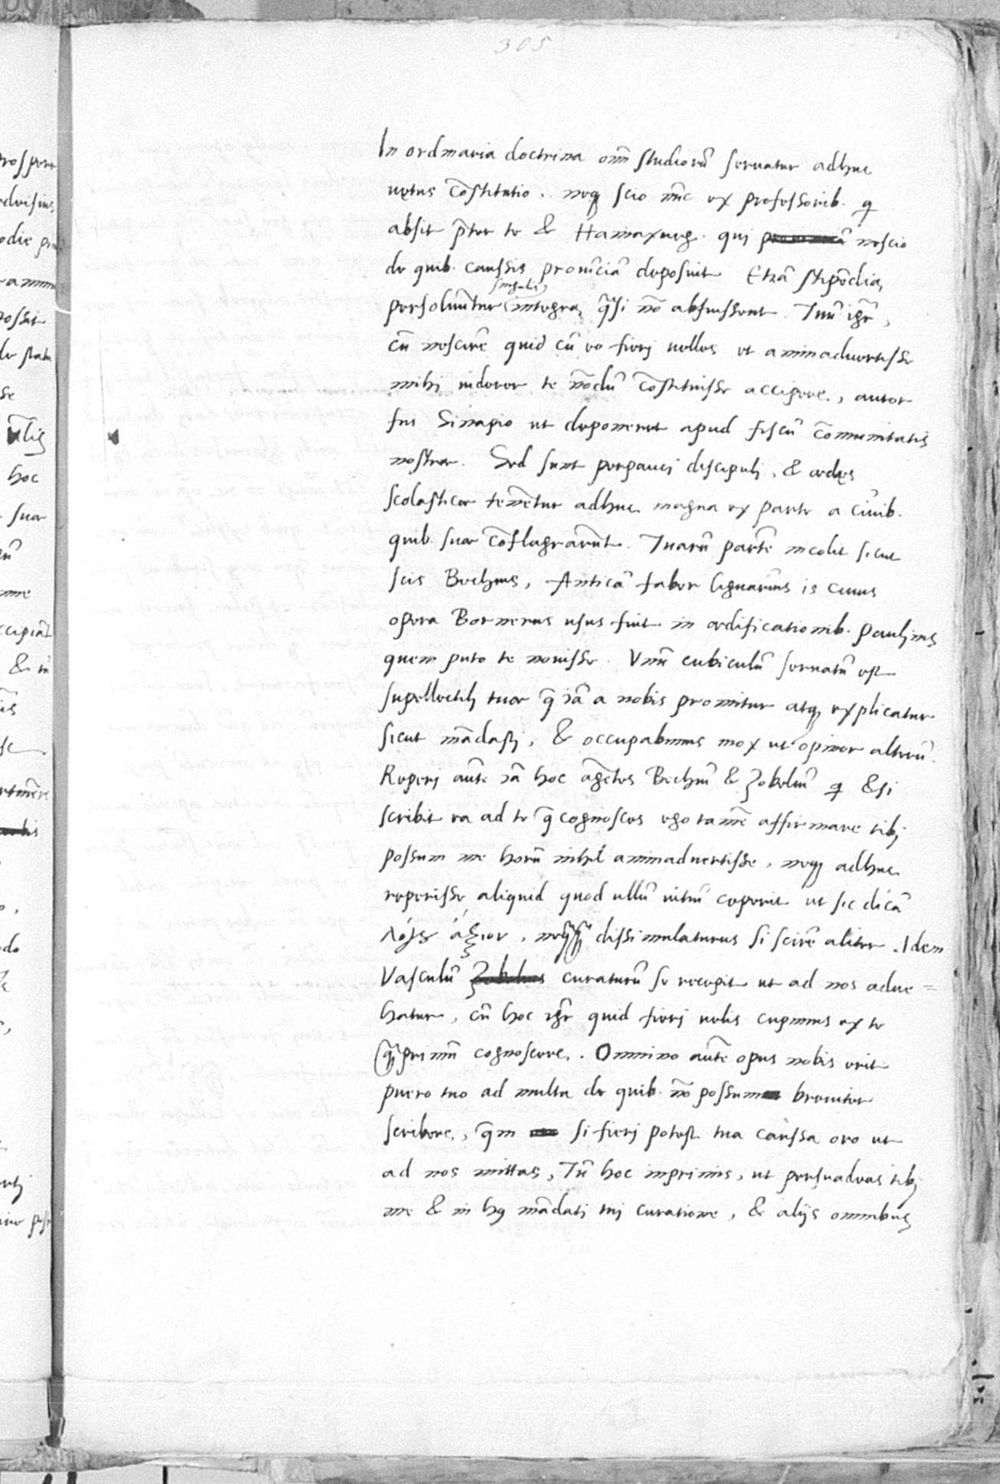 305
In ordinaria doctrina om̄ studiorū seruatur adhuc
vętus cōstitutio. neq̨ scio nūc ex professorib. q̄
absit p̄ter te & Hamaxurg. qui nescio
de quib. caussis prouīciā deposuit Etiā stipēdia
persoluūtur singulis integra, q̄si nō abfuissent. Tuū igr̄,
cū nescirē quid cū eo fierj uelles et animaduertisse
mihj uiderer te nōdū cōstituisse accipere, autor
fui Sinapio ut deponeret apud fiscū cōmunitatis
nostrae. Sed sunt perpauci discipuli, & aedęs
scolasticae tenētur adhuc magna ex parte a ciuib.
quib. suae cōflagrarūt. Tuarū partē incolit sicut
scis Bechius, Anticā faber lignarius is cuius
opera Bornerus usus fuit in aedificationib. Paulinis
quem puto te nouisse. Vnū cubiculū seruatū est
supellectilj tuae q̄ iā a nobis promitur atq̨ explicatur
sicut mādastj, & occupabimus mox ut opinor alterū.
Reperj autē iā hoc agētes Bechiū & Zobelū q̄ &si
scribit ea ad te q̄ cognosces ego tamē affirmare tibj
possum me horū nihil animaduertisse, neq̨ adhuc
reperisse aliquid quod ullū uitiū ceperit ut sic dicā
λόγȣ ἄξιον, neq̨ dissimulaturus si scirē aliter. Idem
Vasculū curaturū se recepit ut ad nos adue=
hatur, cū hoc igr̄ quid fierj uelis cupimus ex te
q̄primū cognoscere. Omnino autē opus nobis erit
puero tuo ad multa de quib. nō possum breuiter
scribere, q̄m si fierj potest tua caussa oro ut
ad nos mittas, Tū hoc inprimis, ut persuadeas tibj
me & in hȷ̄ mādati tuj curatione, & alijs omnibus